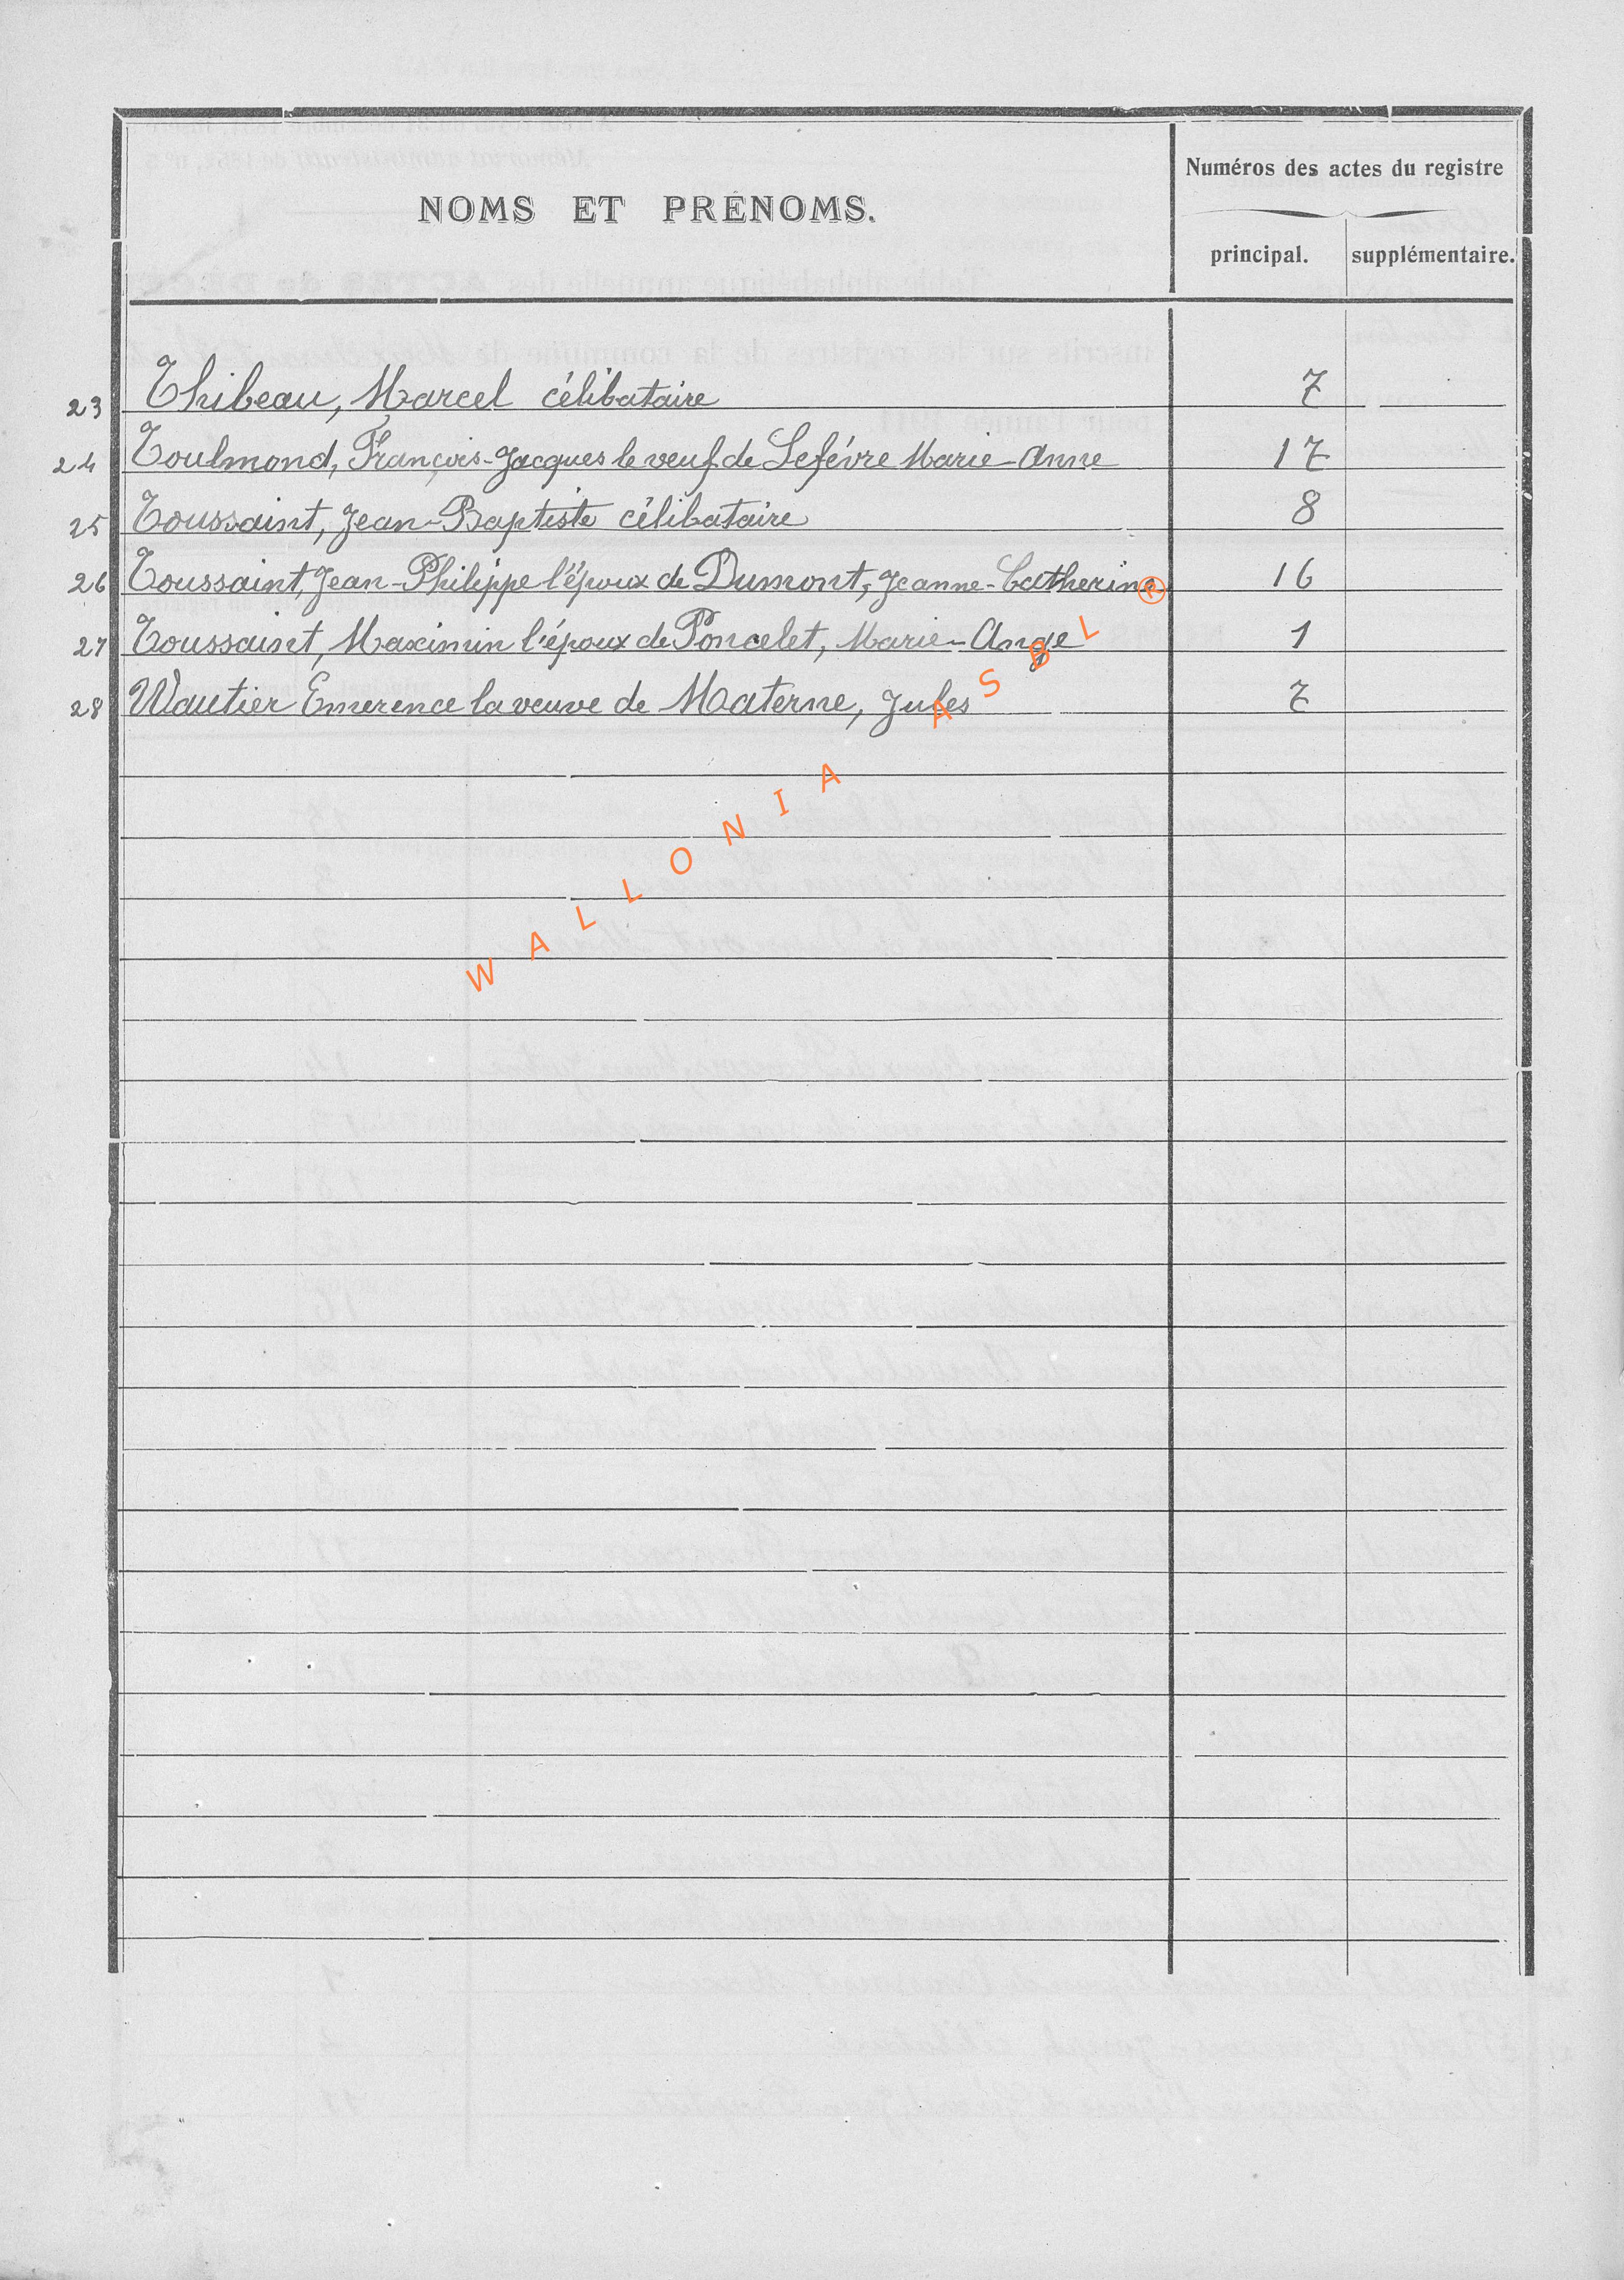 NOMS ET PRÉNOMS.
Numéros des actes du registre
principal. supplémentaire.
23 Thibeau, Marcel célibataire 7
24 Toulmond, François-Jacques le veuf de Lefévre Marie-Anne 17
25 Toussaint, Jean-Baptiste célibataire 8
26 Toussaint, Jean-Philippe l'époux de Dumont, Jeanne-Catherine 16
27 Toussaint, Maximin l'époux de Poncelet, Marie-Ange 1
28 Wautier Emerence la veuve de Materne, Jules 7
WALLONIA ASBL ®